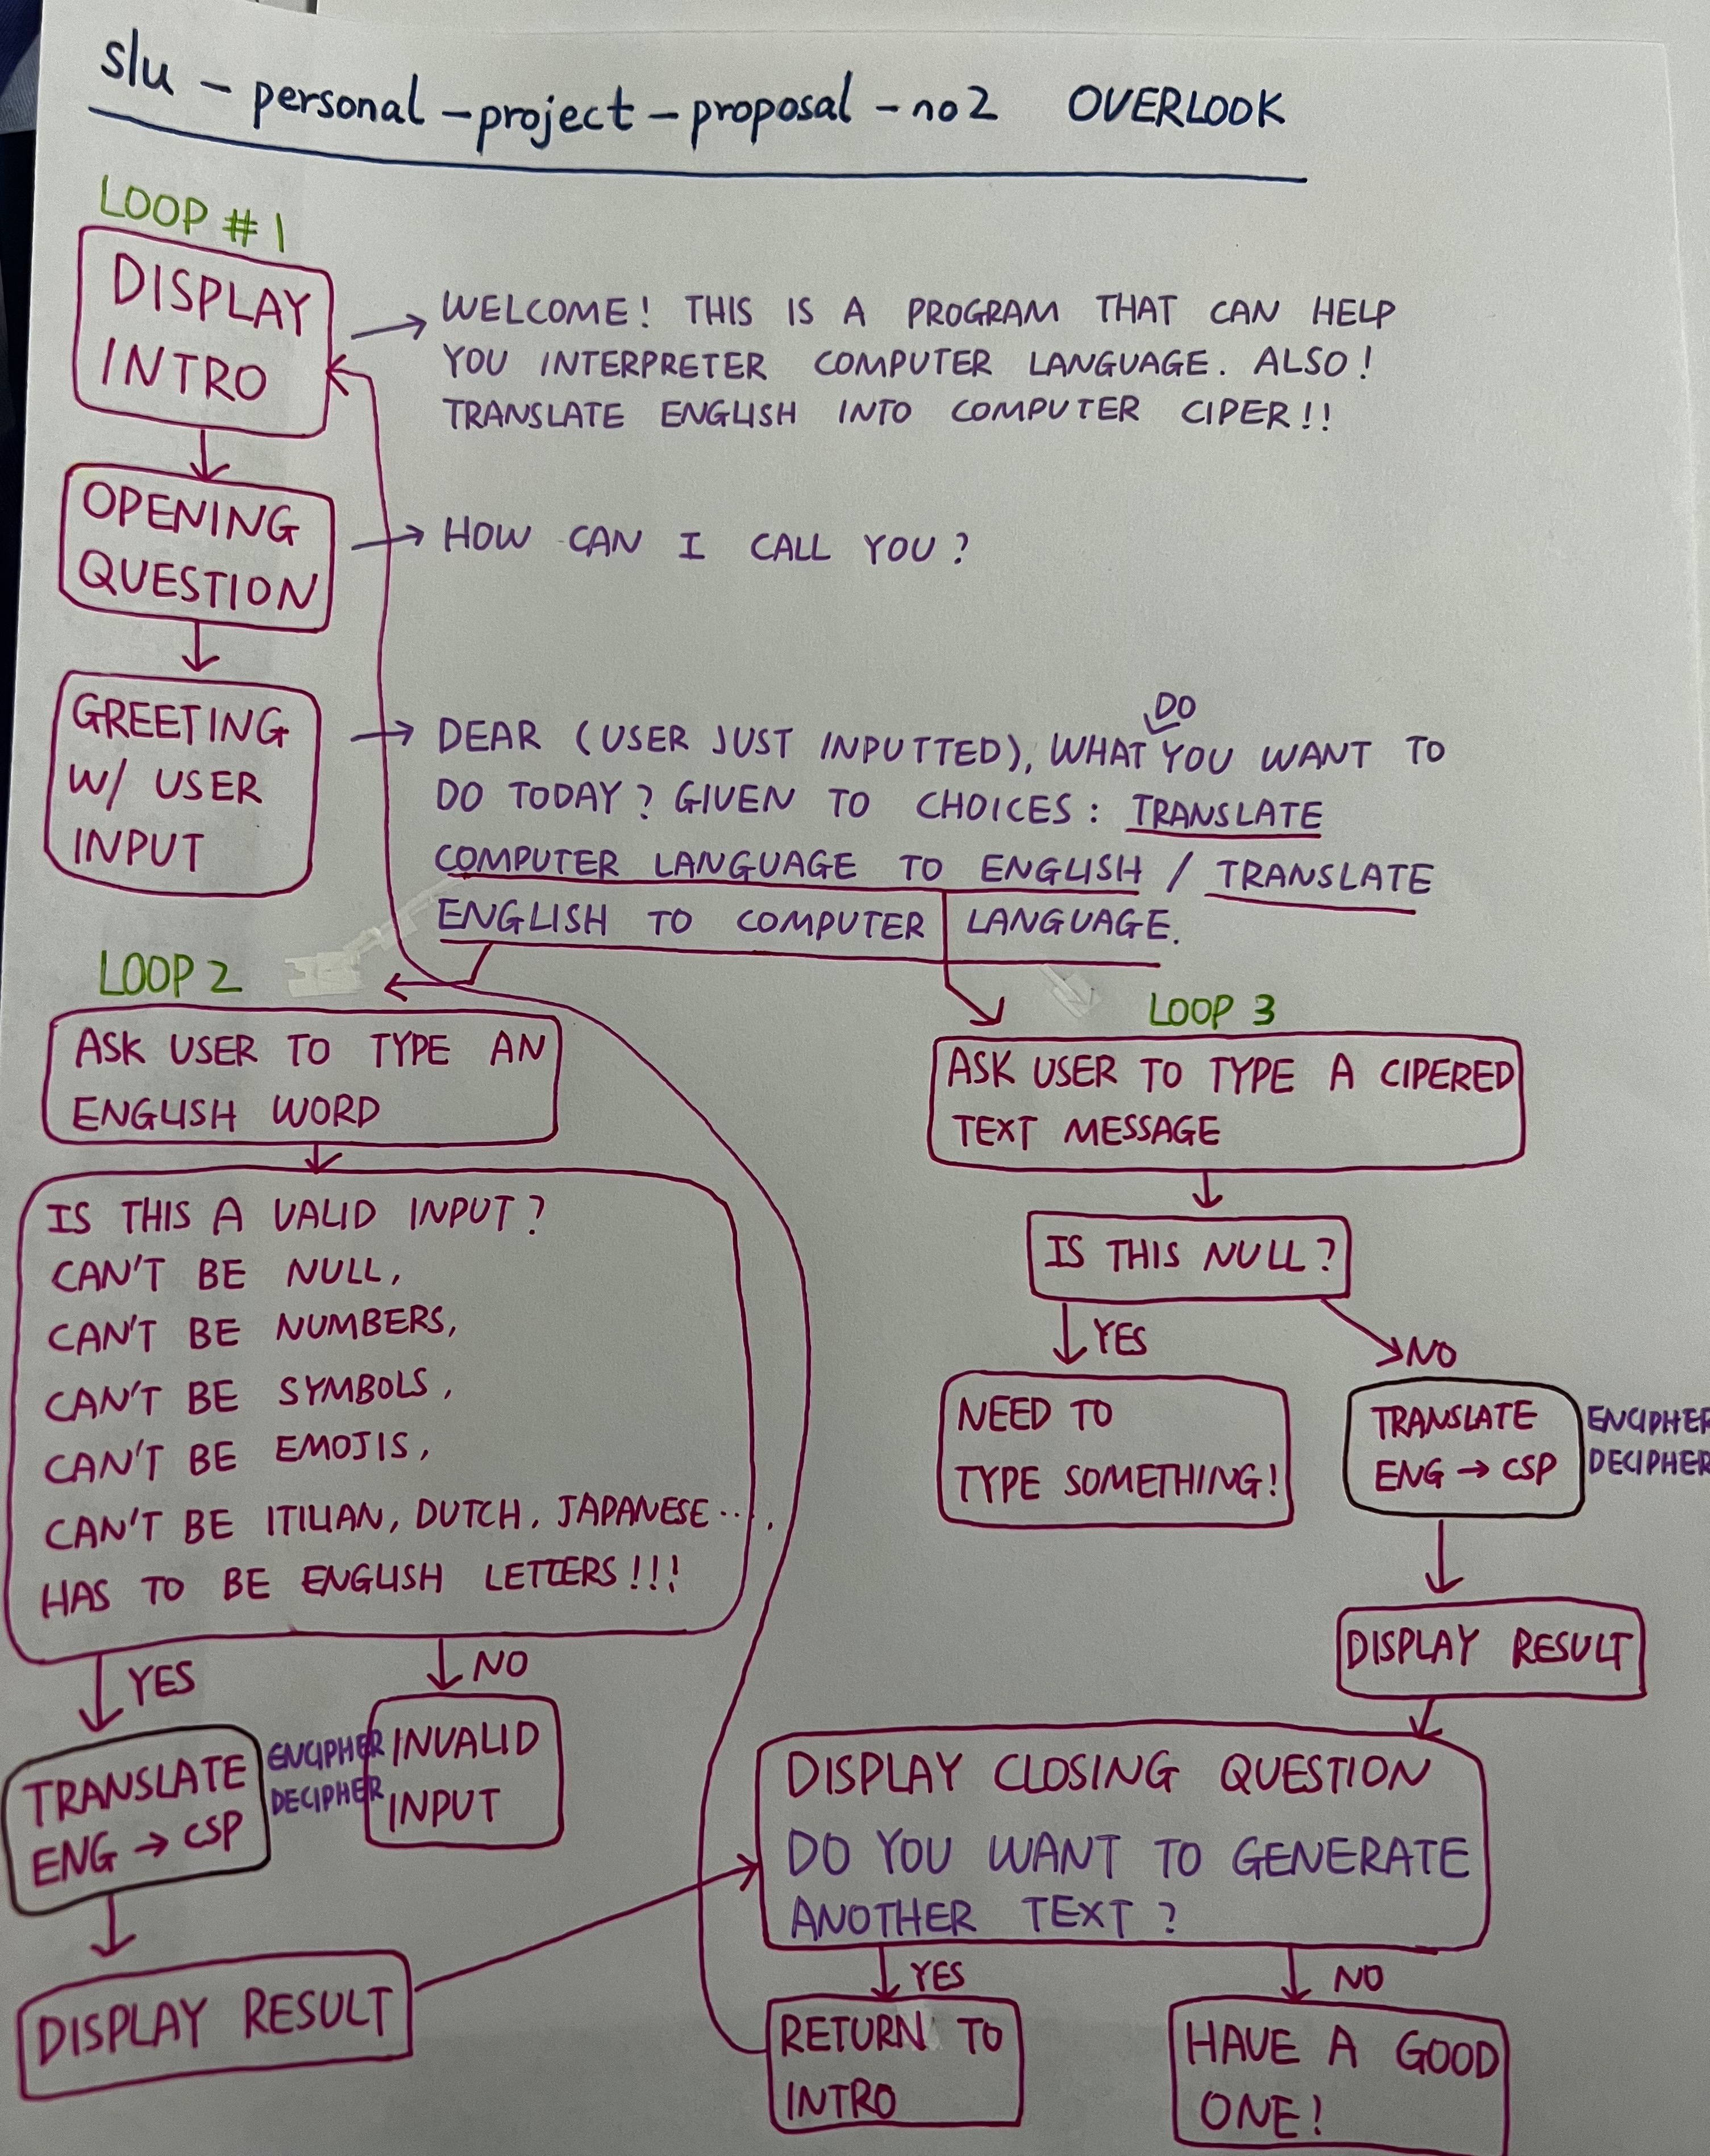 slu - personal - project - proposal - no2 OVERLOOK
LOOP # 1
DISPLAY
INTRO
WELCOME! THIS IS A PROGRAM THAT CAN HELP
YOU INTERPRETER COMPUTER LANGUAGE. ALSO!
TRANSLATE ENGLISH INTO COMPUTER CIPER!!
OPENING
QUESTION
HOW CAN I CALL YOU?
GREETING
W/ USER
INPUT
DO
DEAR (USER JUST INPUTTED), WHAT YOU WANT TO
DO TODAY? GIVEN TO CHOICES: TRANSLATE
COMPUTER LANGUAGE TO ENGLISH / TRANSLATE
ENGLISH TO COMPUTER LANGUAGE.
LOOP 2
ASK USER TO TYPE AN
ENGLISH WORD
IS THIS A VALID INPUT?
CAN'T BE NULL,
CAN'T BE NUMBERS,
CAN'T BE SYMBOLS,
CAN'T BE EMOJIS,
CAN'T BE ITILIAN, DUTCH, JAPANESE....
HAS TO BE ENGLISH LETTERS!!!
YES
NO
TRANSLATE
ENG → CSP
ENCIPHER
DECIPHER
INVALID
INPUT
DISPLAY RESULT
LOOP 3
ASK USER TO TYPE A CIPERED
TEXT MESSAGE
IS THIS NULL?
YES
NO
NEED TO
TYPE SOMETHING!
TRANSLATE
ENG → CSP
ENCIPHER
DECIPHER
DISPLAY RESULT
DISPLAY CLOSING QUESTION
DO YOU WANT TO GENERATE
ANOTHER TEXT?
YES
NO
RETURN TO
INTRO
HAVE A GOOD
ONE!